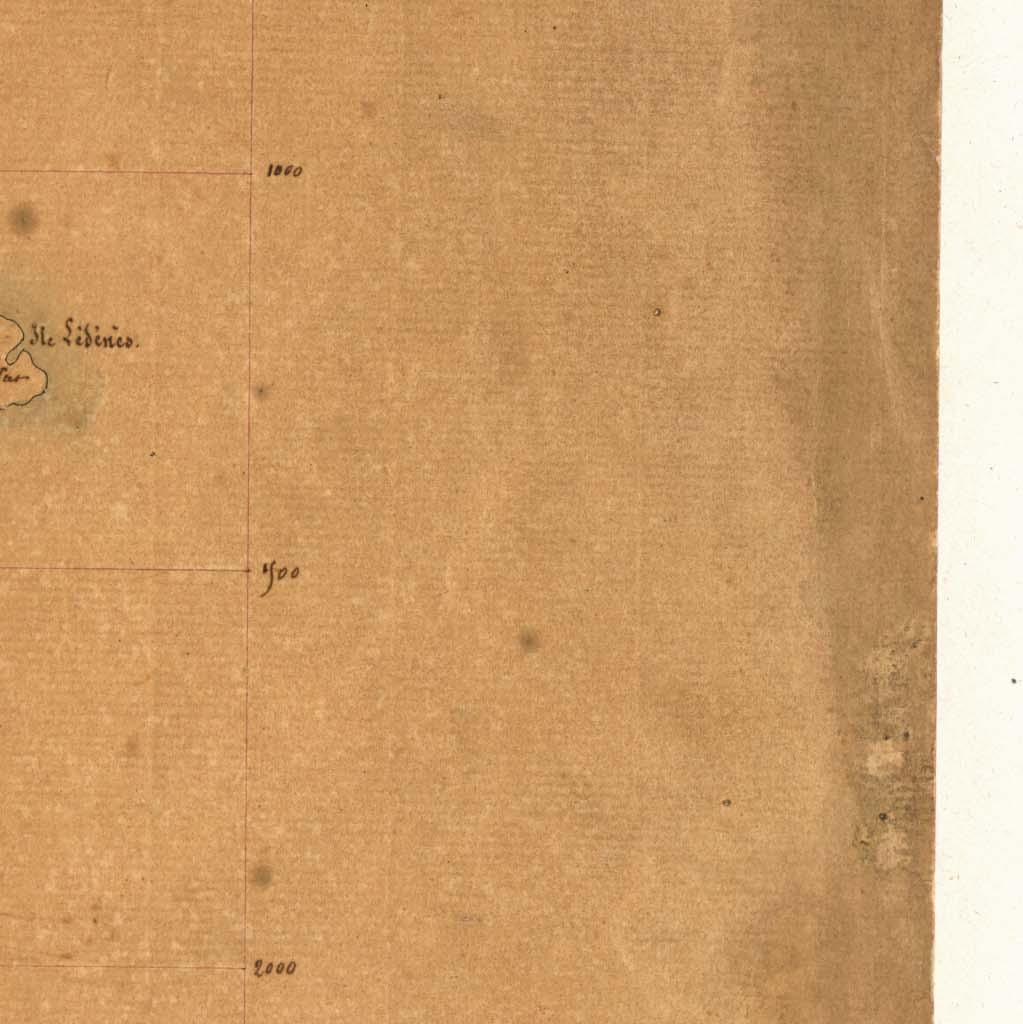 1000
Ile Lédénès.
1500
2000